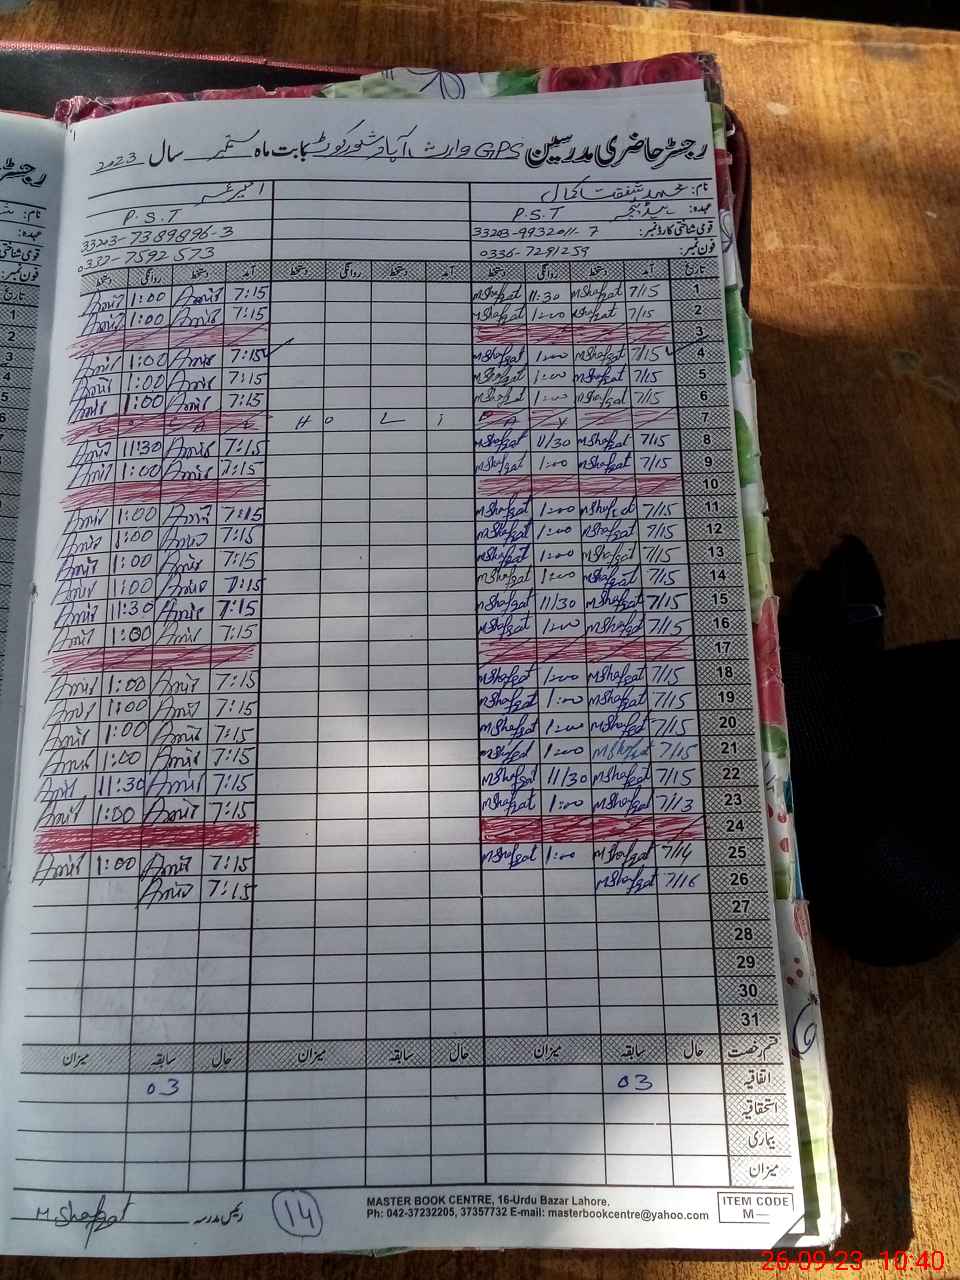 رجسٹر حاضری مدرسین GPS وارث آباد شورکوٹ بابت ماہ ستمبر سال 2023
نام: محمد شفقت کمال
عہدہ: ہیڈ ٹیچر P.S.T P.S.T
قومی شناختی کارڈ نمبر: 33203-9932011-7 33203-7389896-3
فون نمبر: 0336-7291259 0332-7592573
تاریخ آمد دستخط روانگی دستخط آمد دستخط روانگی دستخط آمد دستخط روانگی دستخط
1 7/15 MShafqat 11:30 MShafqat 7:15 Amir 1:00 Amir
2 7/15 MShafqat 1:00 MShafqat 7:15 Amir 1:00 Amir
3
4 7/15 MShafqat 1:00 MShafqat 7:15 Amir 1:00 Amir
5 7/15 MShafqat 1:00 MShafqat 7:15 Amir 1:00 Amir
6 7/15 MShafqat 1:00 MShafqat 7:15 Amir 1:00 Amir
7 H o L i D A Y
8 7/15 MShafqat 11/30 MShafqat 7:15 Amir 11:30 Amir
9 7/15 MShafqat 1:00 MShafqat 7:15 Amir 1:00 Amir
10
11 7/15 MShafqat 1:00 MShafqat 7:15 Amir 1:00 Amir
12 7/15 MShafqat 1:00 MShafqat 7:15 Amir 1:00 Amir
13 7/15 MShafqat 1:00 MShafqat 7:15 Amir 1:00 Amir
14 7/15 MShafqat 1:00 MShafqat 7:15 Amir 1:00 Amir
15 7/15 MShafqat 11/30 MShafqat 7:15 Amir 11:30 Amir
16 7/15 MShafqat 1:00 MShafqat 7:15 Amir 1:00 Amir
17
18 7/15 MShafqat 1:00 MShafqat 7:15 Amir 1:00 Amir
19 7/15 MShafqat 1:00 MShafqat 7:15 Amir 1:00 Amir
20 7/15 MShafqat 1:00 MShafqat 7:15 Amir 1:00 Amir
21 7/15 MShafqat 1:00 MShafqat 7:15 Amir 1:00 Amir
22 7/15 MShafqat 11/30 MShafqat 7:15 Amir 11:30 Amir
23 7/13 MShafqat 1:00 MShafqat 7:15 Amir 1:00 Amir
24
25 7/14 MShafqat 1:00 MShafqat 7:15 Amir 1:00 Amir
26 7/16 MShafqat 7:15 Amir
27
28
29
30
31
قسم رخصت حال سابقہ میزان حال سابقہ میزان حال سابقہ میزان
اتفاقیہ 03 03
استحقاقیہ
بیماری
میزان
M.Shafqat رئیس مدرسہ 14
MASTER BOOK CENTRE, 16-Urdu Bazar Lahore.
Ph: 042-37232205, 37357732 E-mail: masterbookcentre@yahoo.com
ITEM CODE
M—
26-09-23 10:40